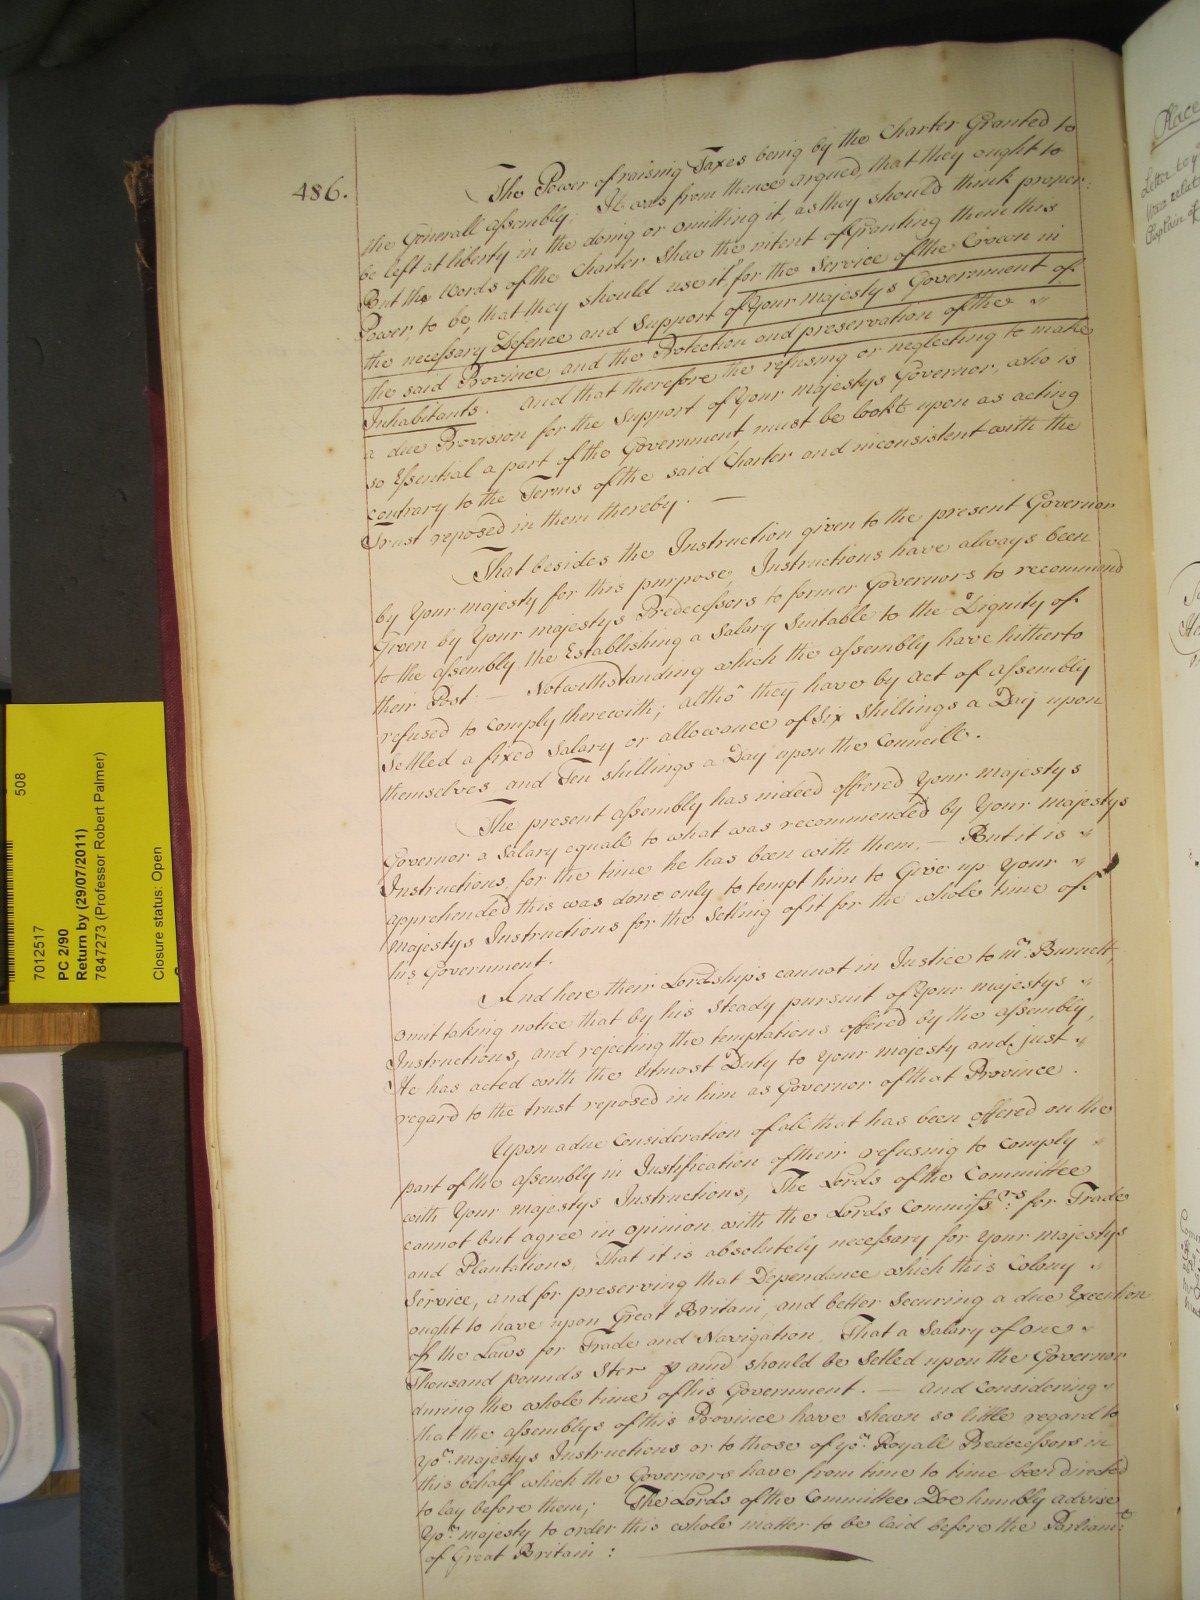 486.
The Power of raising Taxes being by the Charter Granted to
the Generall assembly. It was from thence argued, that they ought to
be left at liberty in the doing or omitting it, as they should think proper:
But the Words of the Charter Shew the intent of Granting them this
Power, to be, that they should use it "for the Service of the Crown in
the necessary Defence and Support of Your Majestys Government of
the said Province, and the Protection and preservation of the
Inhabitants. And that therefore the refusing or neglecting to make
a due Provision for the Support of Your Majestys Governor, who is
so Essential a part of the Government must be lookt upon as acting
contrary to the Terms of the said Charter and inconsistent with the
Trust reposed in them thereby. —
That besides the Instruction given to the present Governor
by Your Majesty for this purpose, Instructions have always been
Given by Your Majestys Predecessors to former Governors to recommend
to the assembly the Establishing a Salary Suitable to the Dignity of
their Post. — Notwithstanding which the assembly have hitherto
refused to comply therewith; altho' they have by Act of assembly
Settled a fixed Salary or allowance of Six Shillings a Day upon
themselves and Ten shillings a Day upon the Councill.
The present assembly has indeed offered Your Majestys
Governor a Salary equall to what was recommended by Your Majestys
Instructions, for the time he has been with them. — But it is
apprehended this was done only to tempt him to Give up Your
Majestys Instructions for the Setling of it for the whole time of
his Government.
And here their Lordships cannot in Justice to Mr. Burnett,
omit taking notice that by his Steady pursuit of Your Majestys
Instructions, and rejecting the temptations offered by the assembly,
He has acted with the utmost Duty to Your Majesty and just
regard to the trust reposed in him as Governor of that Province.
Upon a due Consideration of all that has been offered on the
part of the assembly in Justification of their refusing to comply
with Your Majestys Instructions, The Lords of the Committee
cannot but agree in opinion with the Lords Commissrs: for Trade
and Plantations, That it is absolutely necessary for Your Majestys
Service, and for preserving that Dependance which this Colony
ought to have upon Great Britain, and better Securing a due Execution
of the Laws for Trade and Navigation, That a Salary of One
Thousand pounds Ster p ann should be Setled upon the Governor
during the whole time of his Government. — And Considering
that the assemblys of this Province have shewn so little regard to
Yor. Majestys Instructions or to those of yor. Royall Predecessors in
this behalf which the Governors have from time to time been directed
to lay before them; The Lords of the Committee Doe humbly advise
Yor. Majesty to order this whole matter to be laid before the Parliamt:
of Great Britain:
508
7012517
PC 2/90
Return by (29/07/2011)
7847273 (Professor Robert Palmer)
Closure status: Open